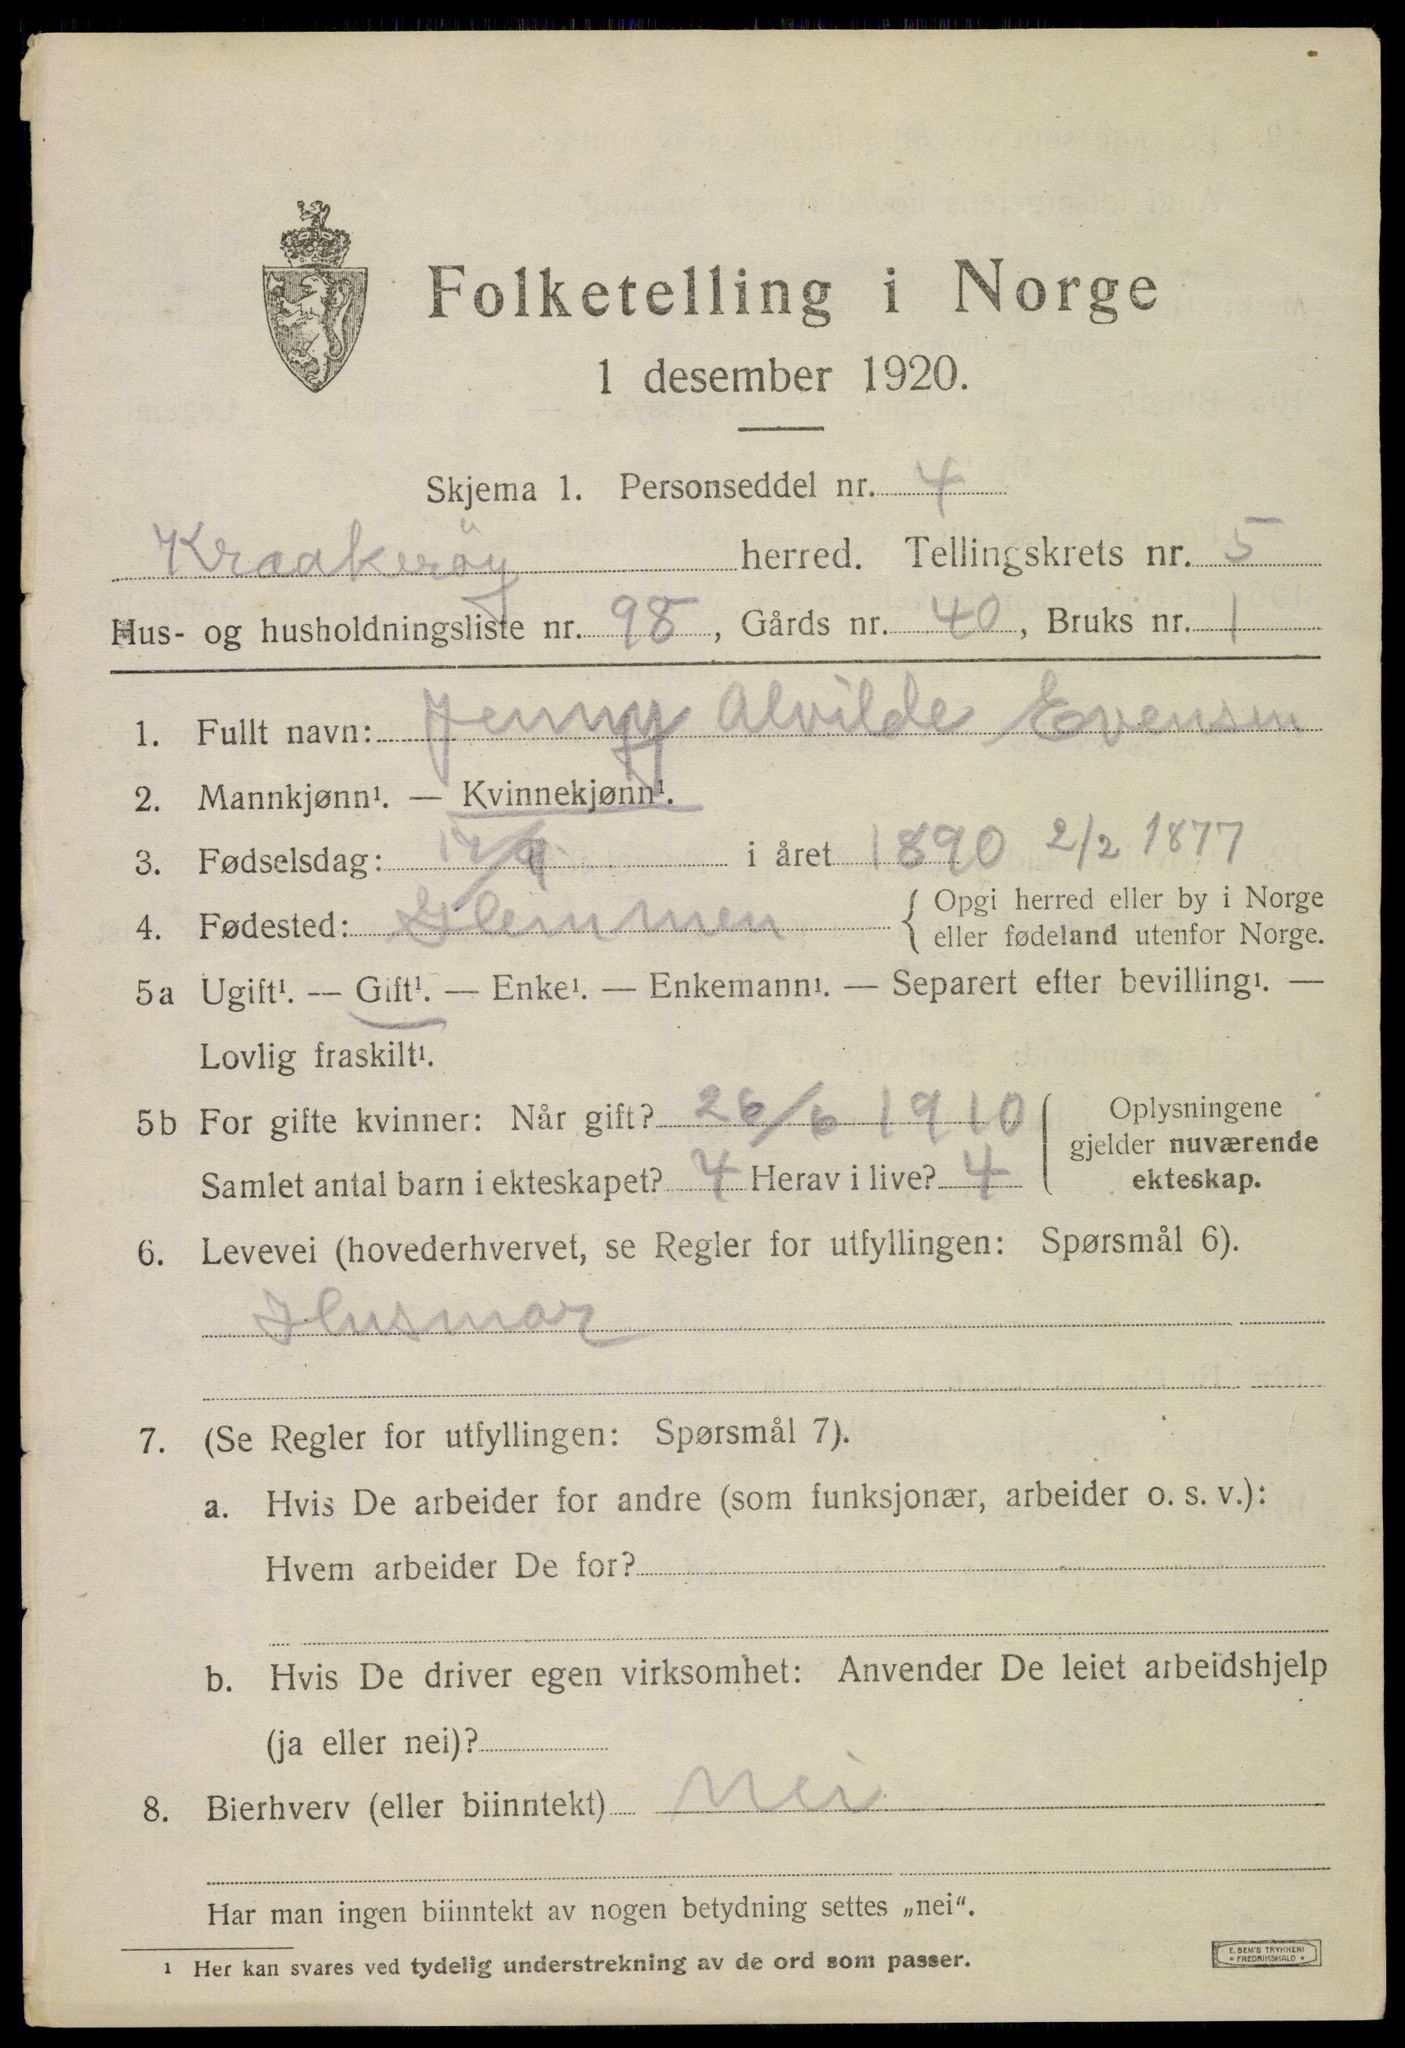 Folketelling i Norge
1 desember 1920.
Skjema 1. Personseddel nr. 4
Kraakerøy herred. Tellingskrets nr. 5
Hus- og husholdningsliste nr. 98, Gårds nr. 40, Bruks nr. 1
1. Fullt navn: Jenny Alvilde Evensen
2. Mannkjønn¹. — Kvinnekjønn¹.
3. Fødselsdag: i året 1890 2/2 1877
4. Fødested: Glemmen { Opgi herred eller by i Norge
eller fødeland utenfor Norge.
5a Ugift¹. — Gift¹. — Enke¹. — Enkemann¹. — Separert efter bevilling¹. —
Lovlig fraskilt¹.
5b For gifte kvinner: Når gift? 26/6 1910 { Oplysningene
gjelder nuværende
Samlet antal barn i ekteskapet? 4 Herav i live? 4 ekteskap.
6. Levevei (hovederhvervet, se Regler for utfyllingen: Spørsmål 6).
Husmor
7. (Se Regler for utfyllingen: Spørsmål 7).
a. Hvis De arbeider for andre (som funksjonær, arbeider o. s. v.):
Hvem arbeider De for?
b. Hvis De driver egen virksomhet: Anvender De leiet arbeidshjelp
(ja eller nei)?
8. Bierhverv (eller biinntekt) Nei
Har man ingen biinntekt av nogen betydning settes „nei“.
¹ Her kan svares ved tydelig understrekning av de ord som passer.
E. SEM'S TRYKKERI
• FREDRIKSHALD •